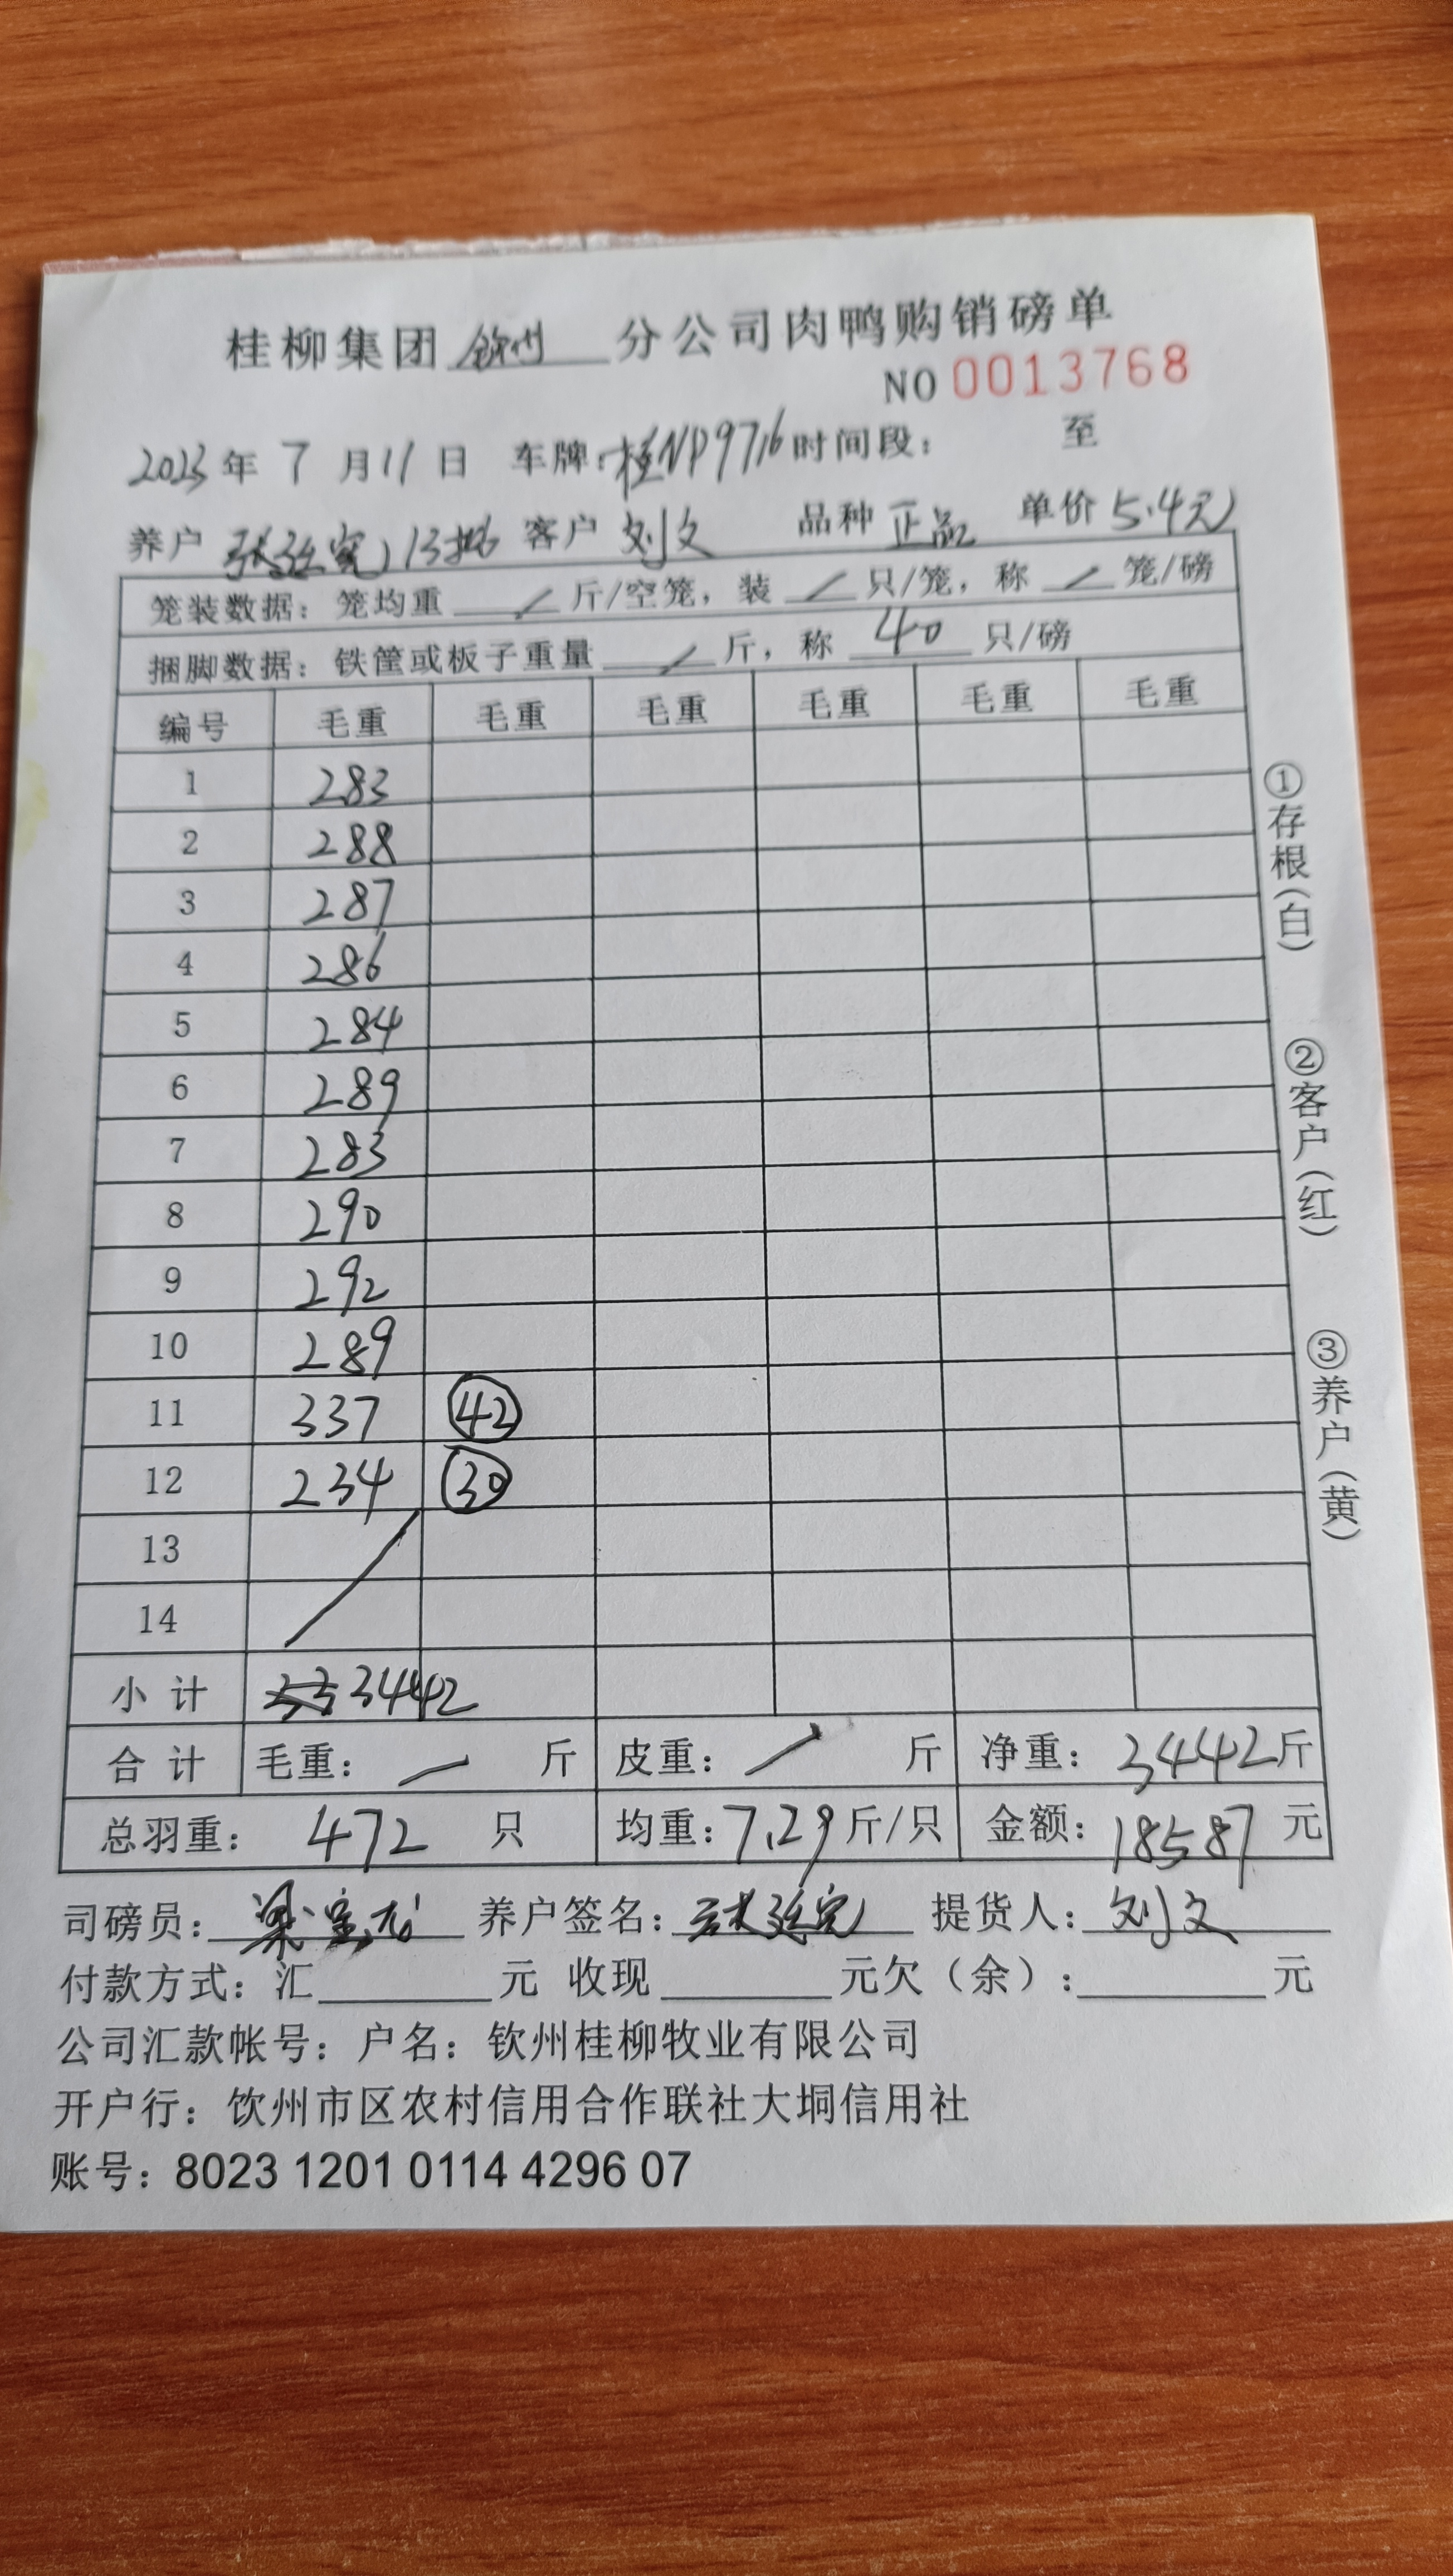 桂柳集团 钦州 分公司肉鸭购销磅单
NO 0013768
2023年 7 月 11 日 车牌:桂NP9716 时间段: 至
养户 张廷宪 13批 客户 刘文 品种 正品 单价 5.4元
笼装数据: 笼均重 / 斤/空笼, 装 / 只/笼, 称 / 笼/磅
捆脚数据: 铁筐或板子重量 / 斤, 称 40 只/磅
编号 毛重 毛重 毛重 毛重 毛重 毛重
1 283
2 288
3 287
4 286
5 284
6 289
7 283
8 290
9 292
10 289
11 337 42
12 234 30
13
14
小计 3442
合计 毛重: 斤 皮重: / 斤 净重: 3442斤
总羽重: 472 只 均重: 7.29斤/只 金额: 18587 元
司磅员: 梁 养户签名: 张廷宪 提货人: 刘文
付款方式: 汇______元 收现______元欠(余):______元
公司汇款帐号: 户名: 钦州桂柳牧业有限公司
开户行: 饮州市区农村信用合作联社大垌信用社
账号: 8023 1201 0114 4296 07
①存根(白)
②客户(红)
③养户(黄)